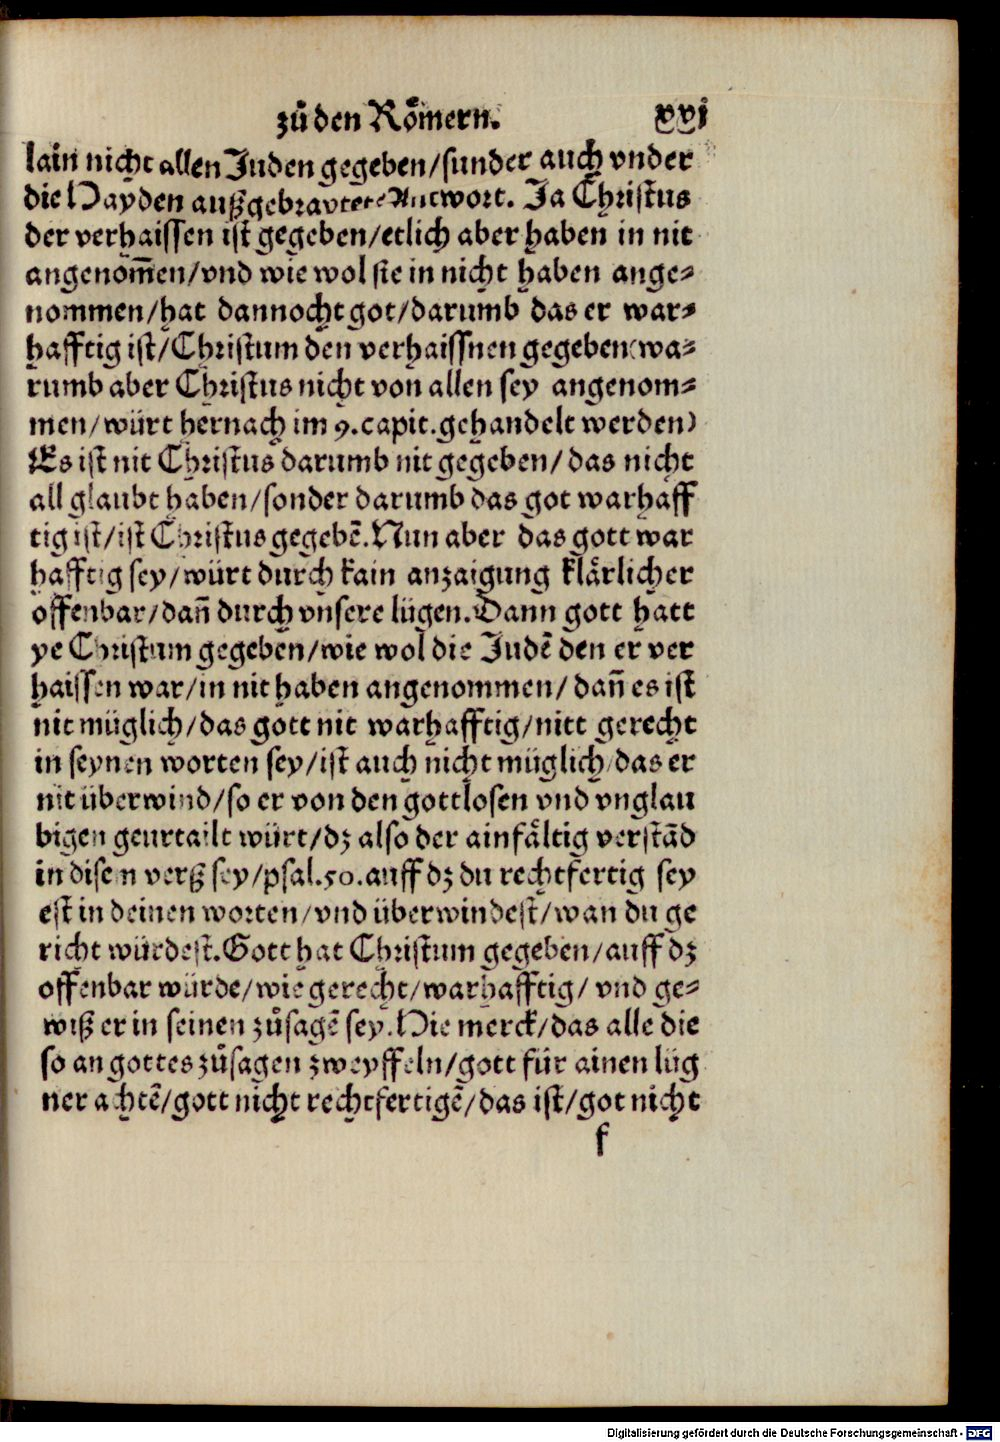 zů den Rőmern. xxj
lain nicht allen Juden gegeben/sunder auch vnder
die Hayden außgebraytet? Antwort. Ja Christus
der verhaissen ist gegeben/etlich aber haben in nit
angenom̃en/vnd wie wol sie in nicht haben ange⸗
nommen/hat dannocht got/darumb das er war⸗
hafftig ist/Christum den verhaissnen gegeben(wa⸗
rumb aber Christus nicht von allen sey angenom⸗
men/würt hernach im 9.capit.gehandelt werden)
Es ist nit Christus darumb nit gegeben/das nicht
all glaubt haben/sonder darumb das got warhaff
tig ist/ist Christus gegebē.Nun aber das gott war
hafftig sey/würt durch kain anzaigung klärlicher
offenbar/dañ durch vnsere lügen.Dann gott hatt
ye Christum gegeben/wie wol die Judē den er ver
haissen war/in nit haben angenommen/dañ es ist
nit müglich/das gott nit warhafftig/nitt gerecht
in seynen worten sey/ist auch nicht müglich/das er
nit überwind/so er von den gottlosen vnd vnglau
bigen geurtailt würt/dz also der ainfältig verstād
in disem verß sey/psal.50.auff dz du rechtfertig sey
est in deinen worten/vnd überwindest/wan du ge
richt würdest.Gott hat Christum gegeben/auff dz
offenbar würde/wie gerecht/warhafftig/vnd ge⸗
wiß er in seinen zůsagē sey.Hie merck/das alle die
so an gottes zůsagen zweyffeln/gott für ainen lüg
ner achtē/gott nicht rechtfertigē/das ist/got nicht
f
Digitalisierung gefördert durch die Deutsche Forschungsgemeinschaft - DFG